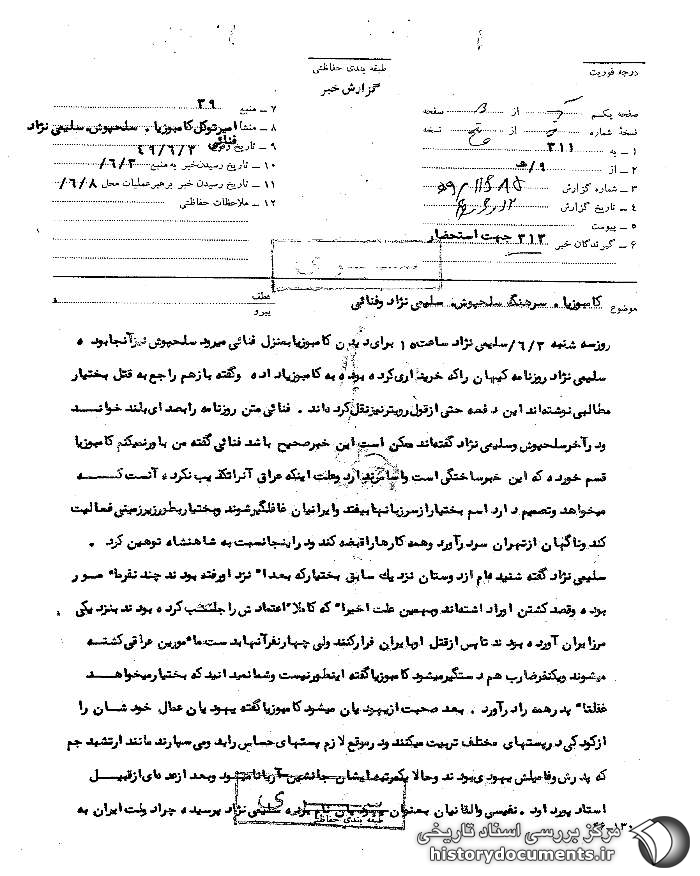 درجه فوریت
طبقه بندی حفاظتی
گزارش خبر
صفحه یکم از صفحه
نسخه شماره از نسخه
۱ ـ به ۳۱۱
۲ ـ از ۹/ﻫ
۳ ـ شماره گزارش
۴ ـ تاریخ گزارش
۵ ـ پیوست
۶ ـ گیرندگان خبر ۳۱۳ جهت استحضار
۷ ـ منبع ۳۹
۸ ـ منشأ امیرتوکل کامبوزیا ـ سلحپوش، سلیمی نژاد
فنائی
۹ ـ تاریخ وقوع ۴۹/۶/۳
۱۰ ـ تاریخ رسیدن خبر به منبع ۶/۳/
۱۱ ـ تاریخ رسیدن خبر برهبر عملیات محل ۶/۸/
۱۲ ـ ملاحظات حفاظتی
موضوع کامبوزیا ـ سرهنگ سلحپوش، سلیمی نژاد و فنائی
عطف
پیرو
روز سه شنبه ۶/۳/ سلیمی نژاد ساعت ۱۰ برای دیدن کامبوزیا بمنزل فنائی میرود سلحپوش نیز آنجا بوده
سلیمی نژاد روزنامه کیهان را که خریداری کرده بوده به کامبوزیا داده و گفته بازهم راجع به قتل بختیار
مطالبی نوشته‌اند این دفعه حتی از قول رویتر نیز نقل کرده‌اند . فنائی متن روزنامه را بصدای بلند خوانده
و در آخر سلحپوش و سلیمی نژاد گفته‌اند ممکن است این خبر صحیح باشد فنائی گفته من باور نمیکنم کامبوزیا
قسم خورده که این خبر ساختگی است و اساس ندارد و علت اینکه عراق آنرا تکذیب نکرده آنست که
میخواهد و تصمیم دارد اسم بختیار از سر زبانها بیفتد و ایرانیان غافلگیر شوند و بختیار بطور زیرزمینی فعالیت
کند و ناگهان از تهران سر درآورد و همه کارها را قبضه کند و در اینجا نسبت به شاهنشاه توهین کرد .
سلیمی نژاد گفته شنیده‌ام از دوستان نزدیک سابق بختیار که بعداً نزد او رفته بودند چند نفر مأمور
بوده و قصد کشتن او را داشته‌اند و بهمین علت اخیراً که کاملاً اعتمادش را جلب کرده بودند بنزدیکی
مرز ایران آورده بودند تا پس از قتل او بایران فرار کنند ولی چهار نفر آنها بدست مأمورین عراقی کشته
میشوند و یکنفر ضارب هم دستگیر میشود کامبوزیا گفته اینطور نیست و شما نمیدانید که بختیار میخواهد
غفلتاً پدر همه را درآورد . بعد صحبت از یهودیان میشود کامبوزیا گفته یهودیان عمال خودشان را
از کودکی در پستهای مختلف تربیت میکنند و در موقع لازم پستهای حساس را بدو می سپارند مانند ارتشبد جم
که پدرش و فامیلش یهودی بودند و حالا یکمرتبه ایشان جانشین آریانا میشود و بعد از عده‌ای از قبیل
استاد پورداود . نفیسی و القانیان بعنوان یهودیان نام برده سلیمی نژاد پرسیده چرا دولت ایران به
طبقه بندی حفاظتی
مرکز بررسی اسناد تاریخی
historydocuments.ir